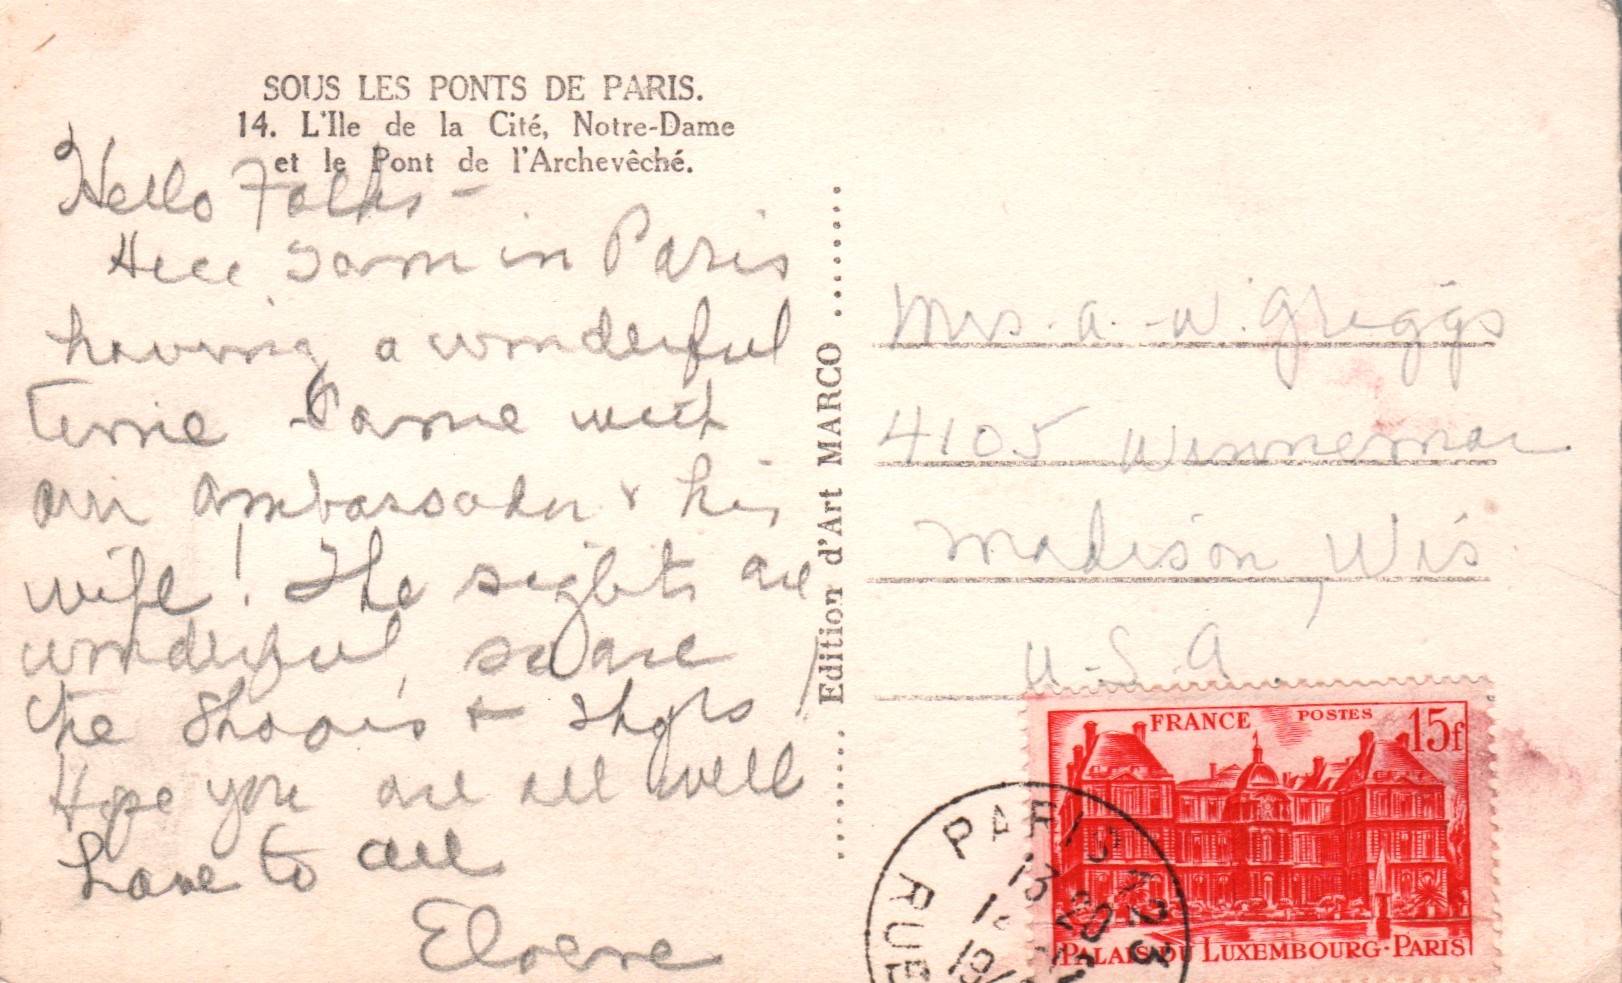 SOUS LES PONTS DE PARIS.
14. L'Ile de la Cité, Notre-Dame
et le Pont de l'Archevêché.
Hello Folks -
Here I am in Paris
having a wonderful
time. Came with
our ambassador & his
wife! The sights are
wonderful, so are
the & 
Hope you are all well
Love to all
Eloene
Edition d'Art MARCO
Mrs. A. W. Griggs
4105 Winnemac
Madison, Wis
U.S.A.
FRANCE POSTES 15f
PALAIS DU LUXEMBOURG-PARIS
PARIS
13 20
RUE